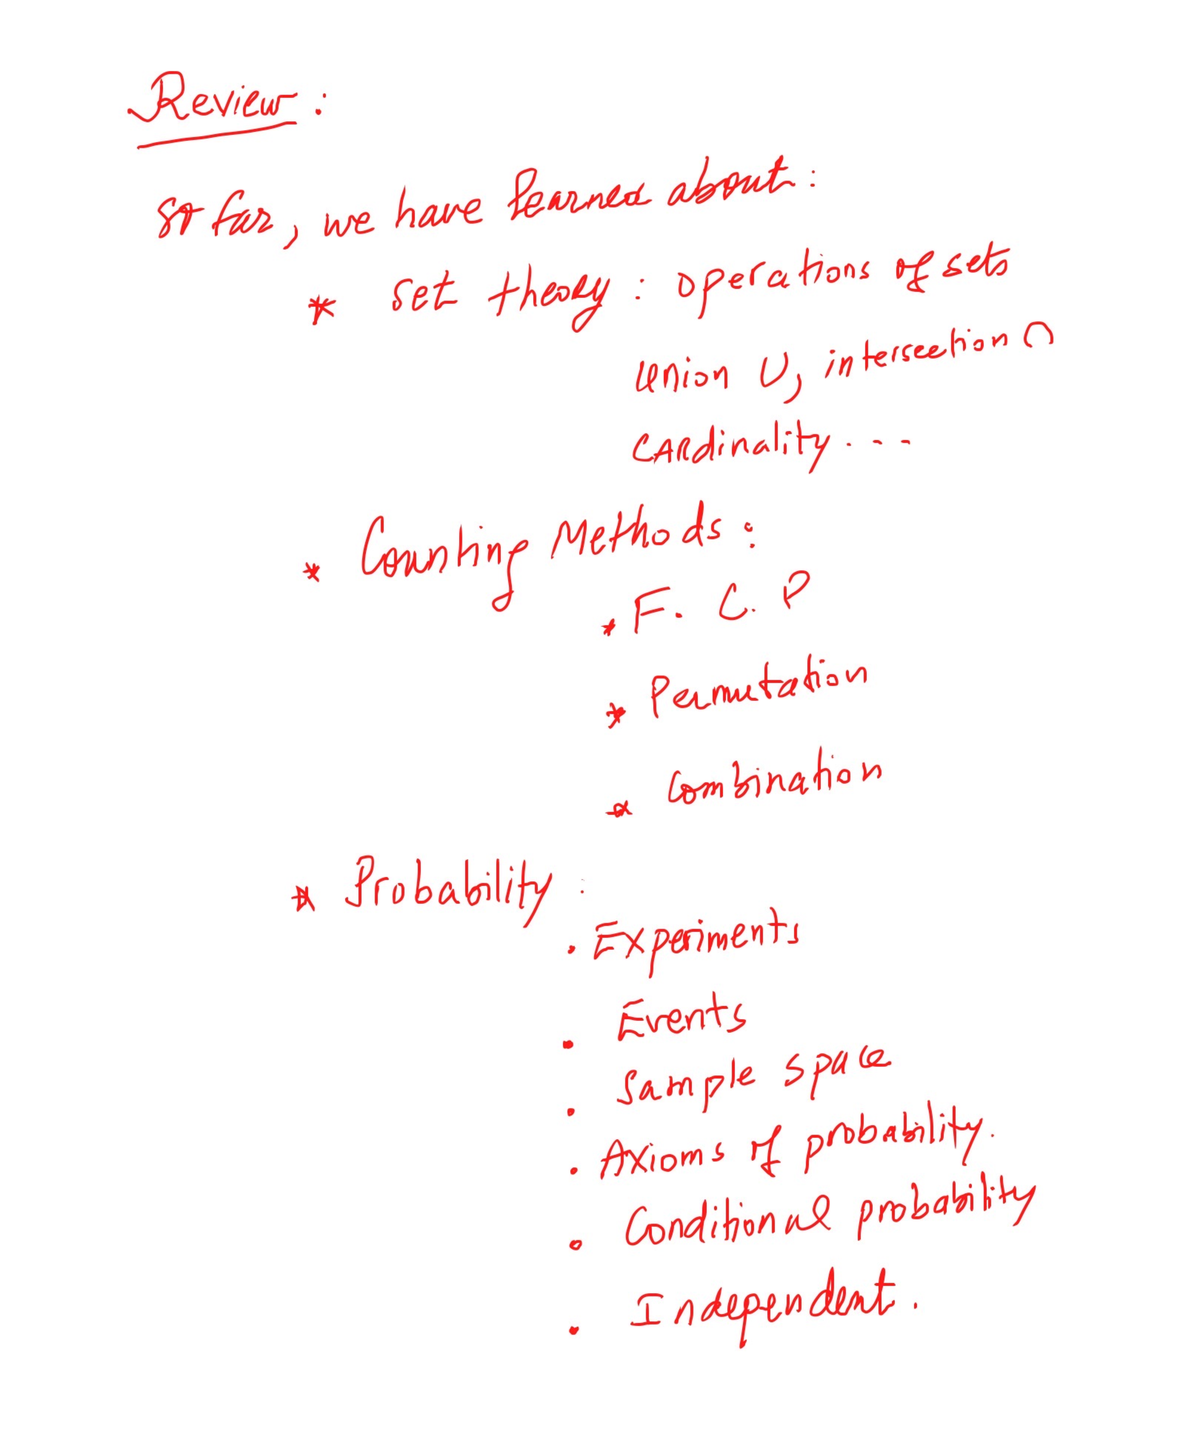 Review :
So far, we have learned about :
* set theory : operations of sets
union ∪, intersection ∩
CARdinality ...
* Counting Methods :
* F. C. P
* Permutation
* Combination
* Probability :
. Experiments
. Events
. Sample space
. Axioms of probability.
. Conditional probability
. Independent.